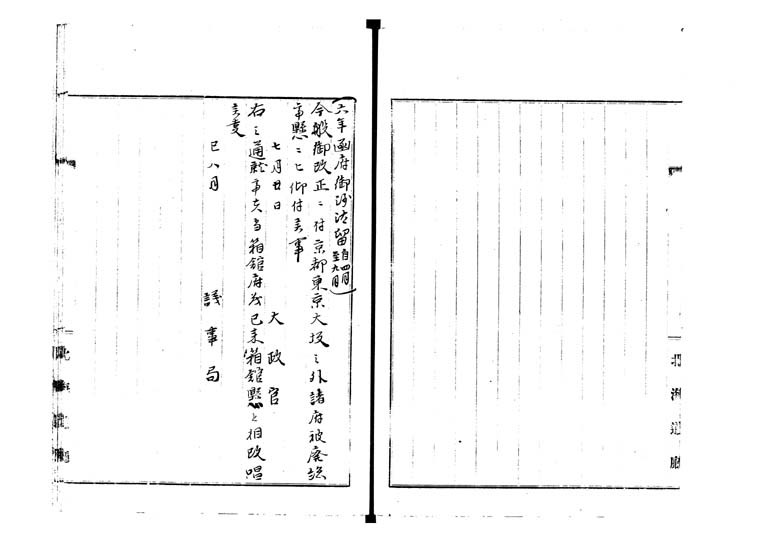 (六年函府御沙汰留 自四月至九月)
今般御改正ニ付京都東京大坂之外諸府被廃総
而県ニ被仰付候事
七月廿日
太政官
右之通被仰出当箱館府茂已来箱館県と相改唱
候事
巳八月
議事局
北海道庁